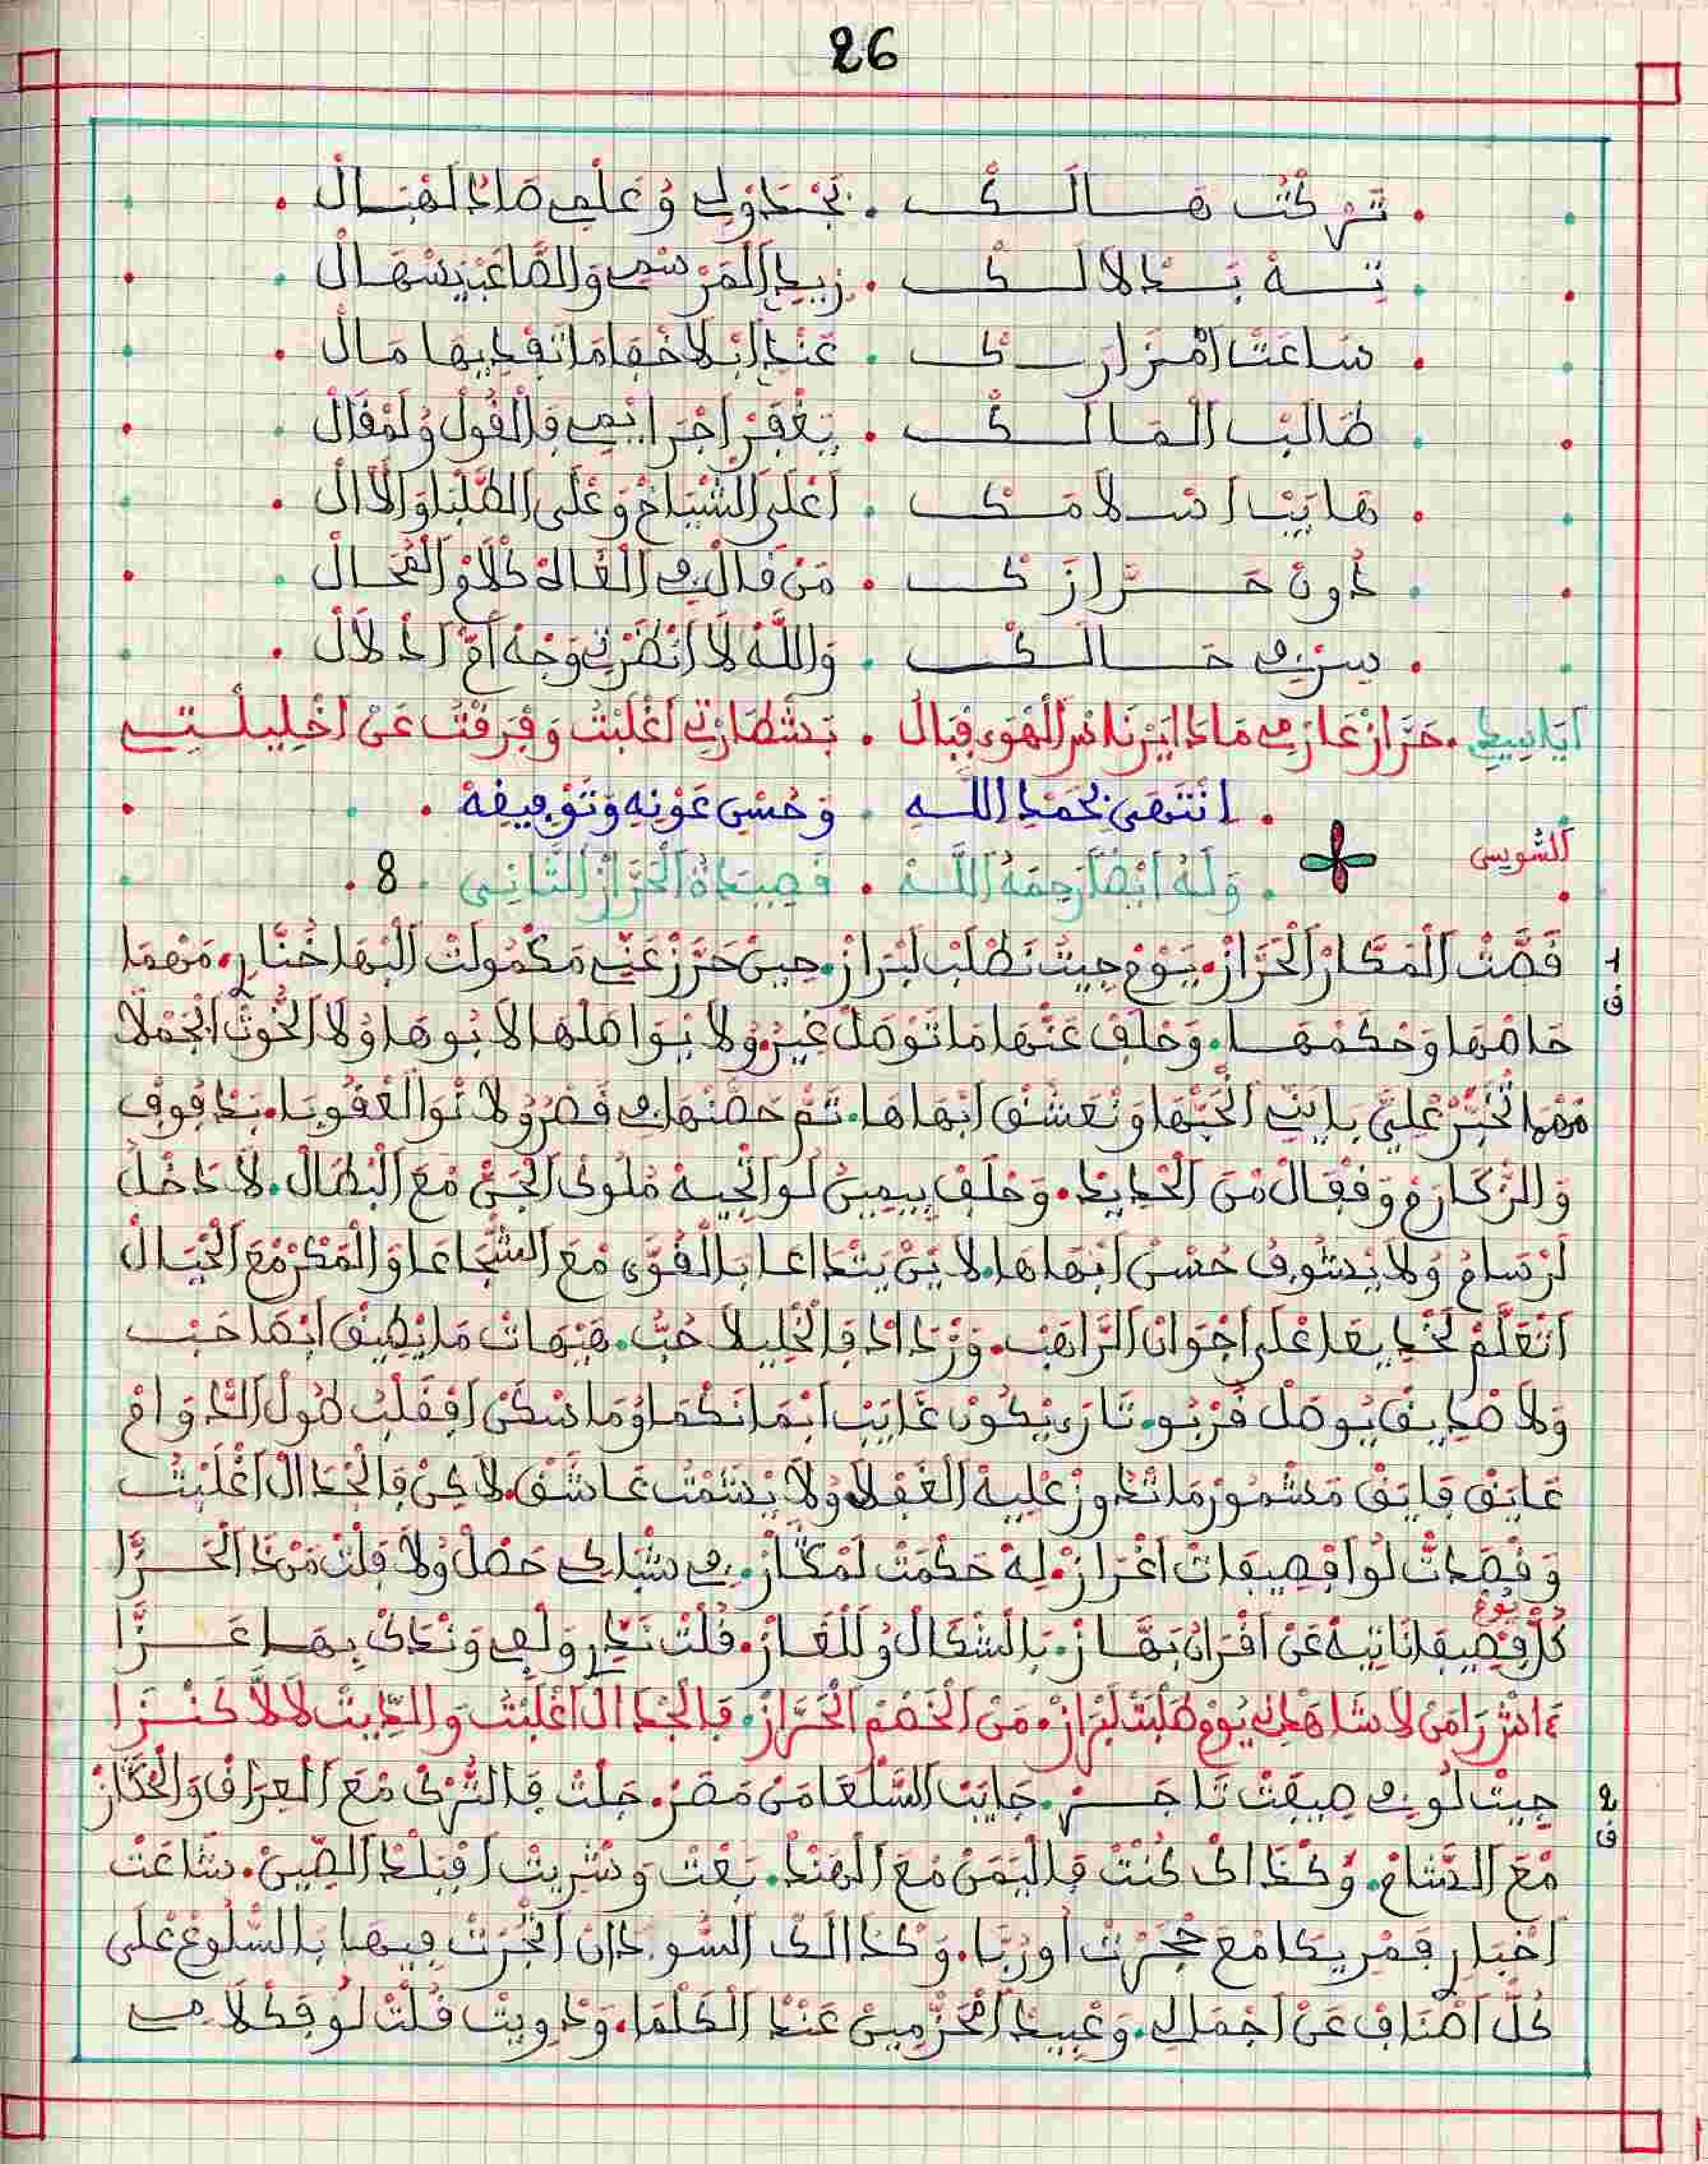 26
تركت هالك . نجدولي وعلمي صادا لهبال
ته بدلالك . زيد المرسمي والصاعب يسهال
ساعت امزارك . عند ابلاخفا ما نفديها مال
طالب المالك . يغفر اجرايمي فالقول ولمقال
هايب اسلامك . اعلى الشياخ وعلى الطلبا والاال
دون حرازك . من قال في القالة كلام الفحال
سر في حالك . والله لا انضرتي وجه ام ادلال
اياسيدي . حراز عارمي ماذا ايرنا سر الهوى قبال . بشطارتي اغلبت وفرقت عن اخليلتي
انتهى بحمد الله وحسن عونه وتوفيقه
الشويس
وله ايضا رحمه الله . قصيدة الحراز الثاني . 8
1 ف قصت المكار الحراز . يوم جيت نطلب لبراز . حين حرز عني مكمولت البها خنار . مهما
حاصها وحكمها . وحلف عنها ما توصل غير ولا يواصلها لا بوها ولا الخوت الجملا
مهما تخبر علي بايني الحبها ونعشق ابهاها . تم حصنها في قصرو لا توا لعقوبا . بدفوف
والزكارم وقفال من الحديد . وحلف بيمين لو اتجيه ملوك الجن مع البطال . لا دخل
لرسام ولا يشوف حسن ابهاها . لا ين يتداعا بالقوى مع الشجاعا والمكر مع الحيال
اتعلم لخديعا على اجوان الراهب . وزداد فالخليلا حب . هيهات ما يطيق ابها حب
ولا ضديق يوصل قربو . تاري يكون غايب ابما نكماو ما سكن افقلب طول الدوام
عايق فايق مشمور ما تدوز عليه الغفلا ولا يشمت عاشق . لاكن فالجدال اغلبت
وقصدت لو افصيفات اغراز . له حكمت لمكاز . في شباكي حصل ولا فلت من دا الحرا
كل يوم فصيفا ناتيه عن افران بهاز . بالشكال ولالغاز . قلت ندي ولفي وندك بيها عزا
ءاش را من لا شاهدني يوم طلبت لبراز . من الخصم الحراز . فالجدال اغلبت والديت لالا كنزا
2 ف جيت لو في صيفت تاجر . جايب السلعا من مصر . جلت فالترك مع العراق والحكاز
مع الشام . وكذاك كنت فاليمن مع الهند . بعت وشريت افبلد الصين . شاعت
اخبار فمريكا مع حجرت اوربا . وكذالك السودان اتجرت فيها بالسلوع على
كل اصناف عن اجمالي . وعبيد امحزمين عند الكلما . ودويت قلت لو فكلامي